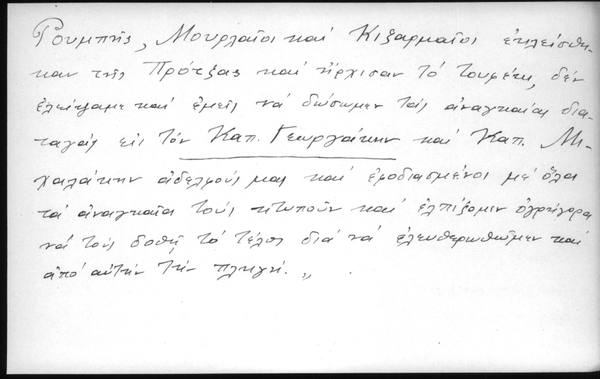 Ρουμπῆς, Μουρλαῖοι καί Κιζαρμαῖοι ἐκλείσθη-
καν τῆς Πρότζας καί ἤρχισαν τό τουφέκι, δέν
ἐλείψαμε καί ἐμεῖς νά δώσωμεν τάς ἀναγκαίας δια-
ταγάς εἰς τόν Καπ. Γεωργάκην καί Καπ. Μι-
χαλάκην ἀδελφούς μας καί ἐφοδιασμένοι μέ ὅλα
τά ἀναγκαῖα τούς κτυποῦν καί ἐλπίζομεν ὀγρήγορα
νά τούς δοθῇ τό τέλος διά νά ἐλευθερωθῶμεν καί
ἀπό αὐτήν τήν πληγή.,,